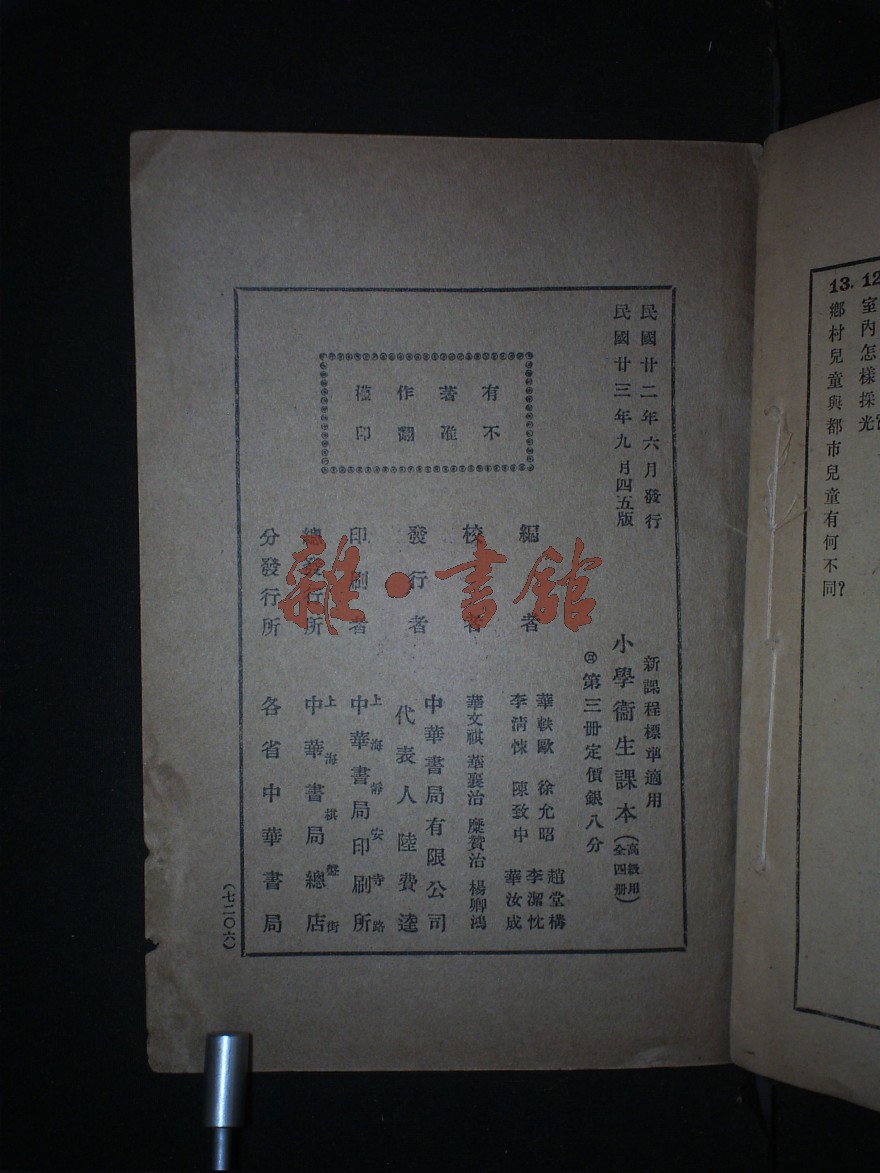 13.
鄉村兒童與都市兒童有何不同?
室內怎樣採光
民國廿二年六月發行
民國廿三年九月四五版
有著作權
不准翻印
新課程標準適用
小學衞生課本(高級用全四冊)
第三冊定價銀八分
編者
華軼歐 徐允昭 趙堂構
李清悚 陳致中 李潔忱
華汝成
校者
華文祺 華襄治 糜贊治 楊卿鴻
發行者
中華書局有限公司
代表人陸費逵
印刷者
上海靜安寺路
中華書局印刷所
總發行所
上海棋盤街
中華書局總店
分發行所
各省中華書局
(七二〇六)
雜·書館